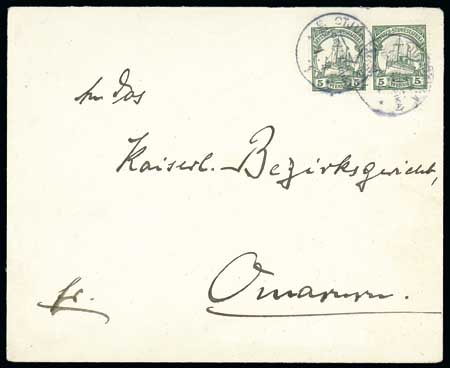 5 5 5 5
An das
Kaiserl. Bezirksgericht,
Omaruru.
fr.